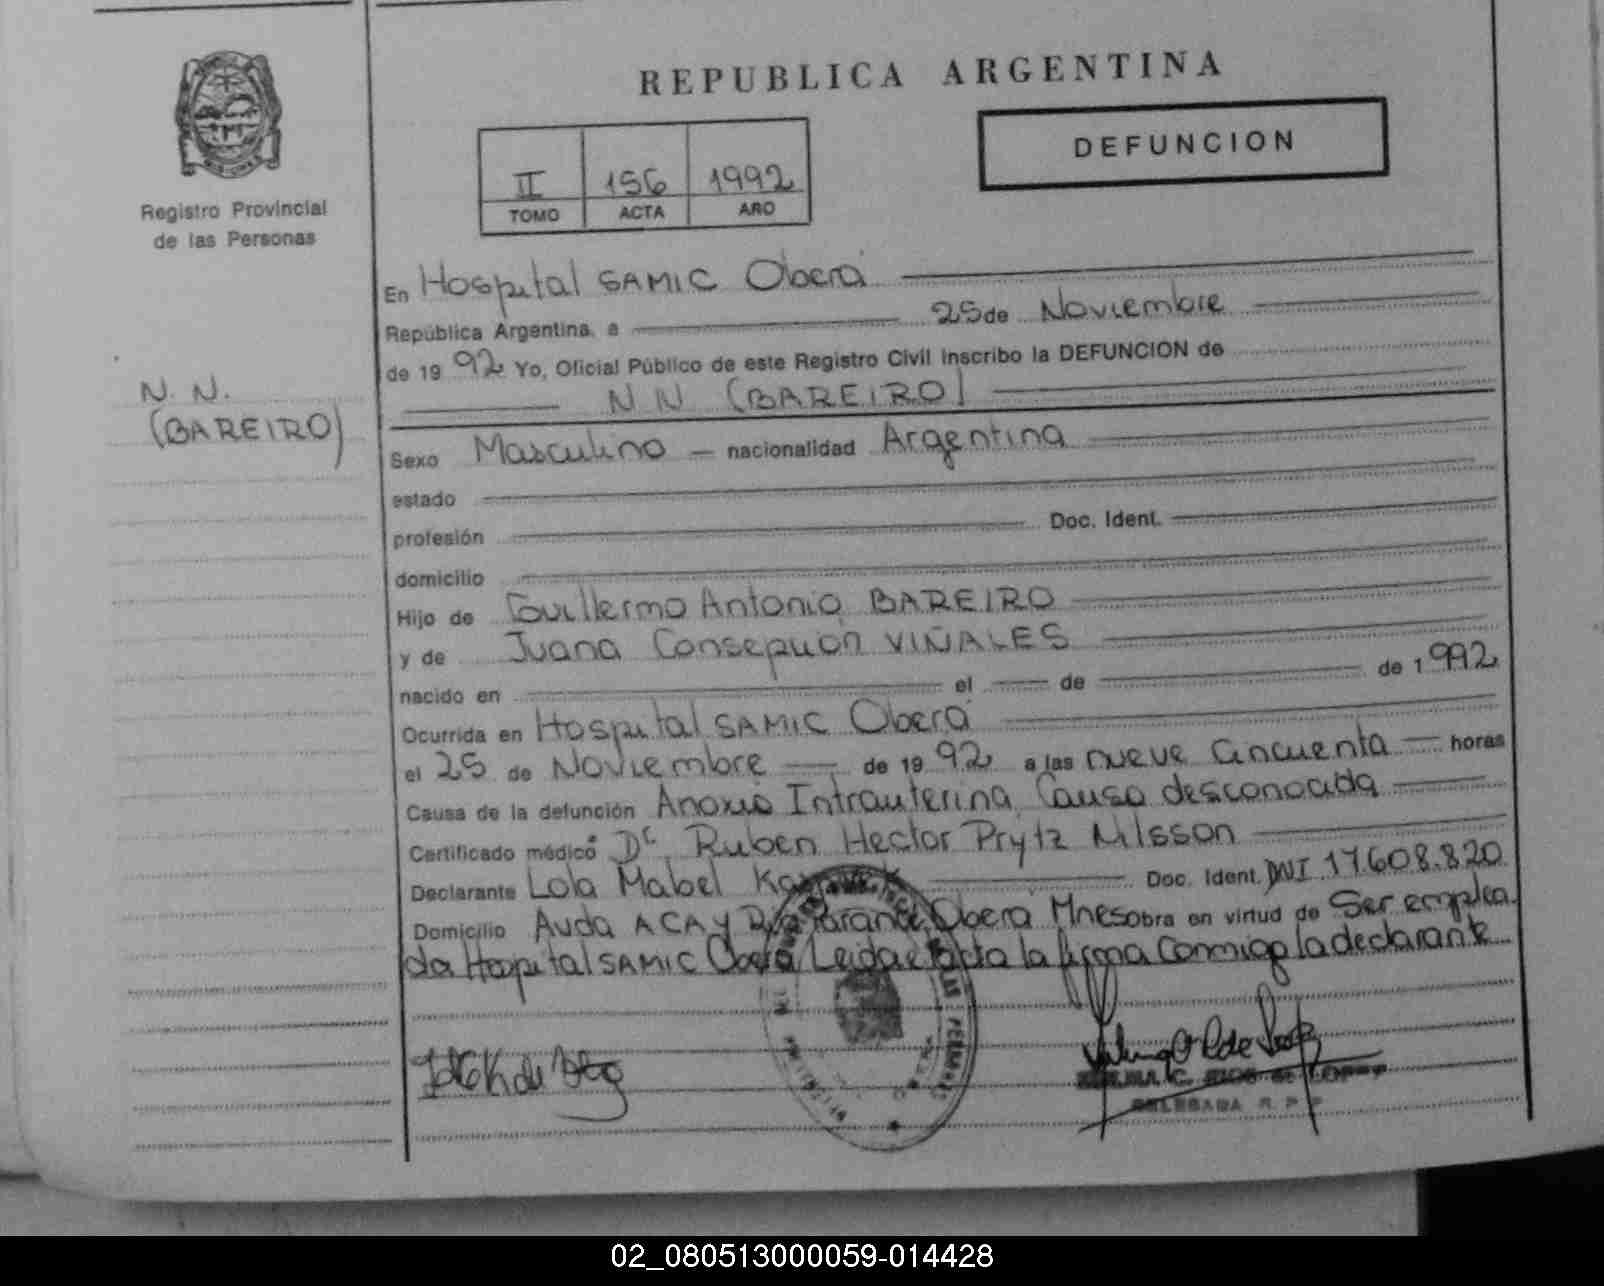 REPUBLICA ARGENTINA
DEFUNCION
II 156 1992
TOMO ACTA AÑO
Registro Provincial
de las Personas
N. N.
(BAREIRO)
En Hospital SAMIC Oberá
República Argentina, a 25 de Noviembre
de 1992 Yo, Oficial Público de este Registro Civil inscribo la DEFUNCION de
NN (BAREIRO)
Sexo Masculino - nacionalidad Argentina
estado
profesión Doc. Ident.
domicilio
Hijo de Guillermo Antonio BAREIRO
y de Juana Consepción VIÑALES
nacido en el de de 1992
Ocurrida en Hospital SAMIC Oberá
el 25 de Noviembre de 1992 a las nueve cincuenta horas
Causa de la defunción Anoxia Intrauterina Causa desconocida
Certificado médico Dr. Ruben Hector Prytz Nilsson
Declarante Lola Mabel Doc. Ident. DNI 17.608.820
Domicilio Avda ACA y Oberá Mnes obra en virtud de Ser emplea
da Hospital SAMIC Oberá Leida el acta la firma conmigo la declarante
DELEGADA R. P. P
02_080513000059-014428